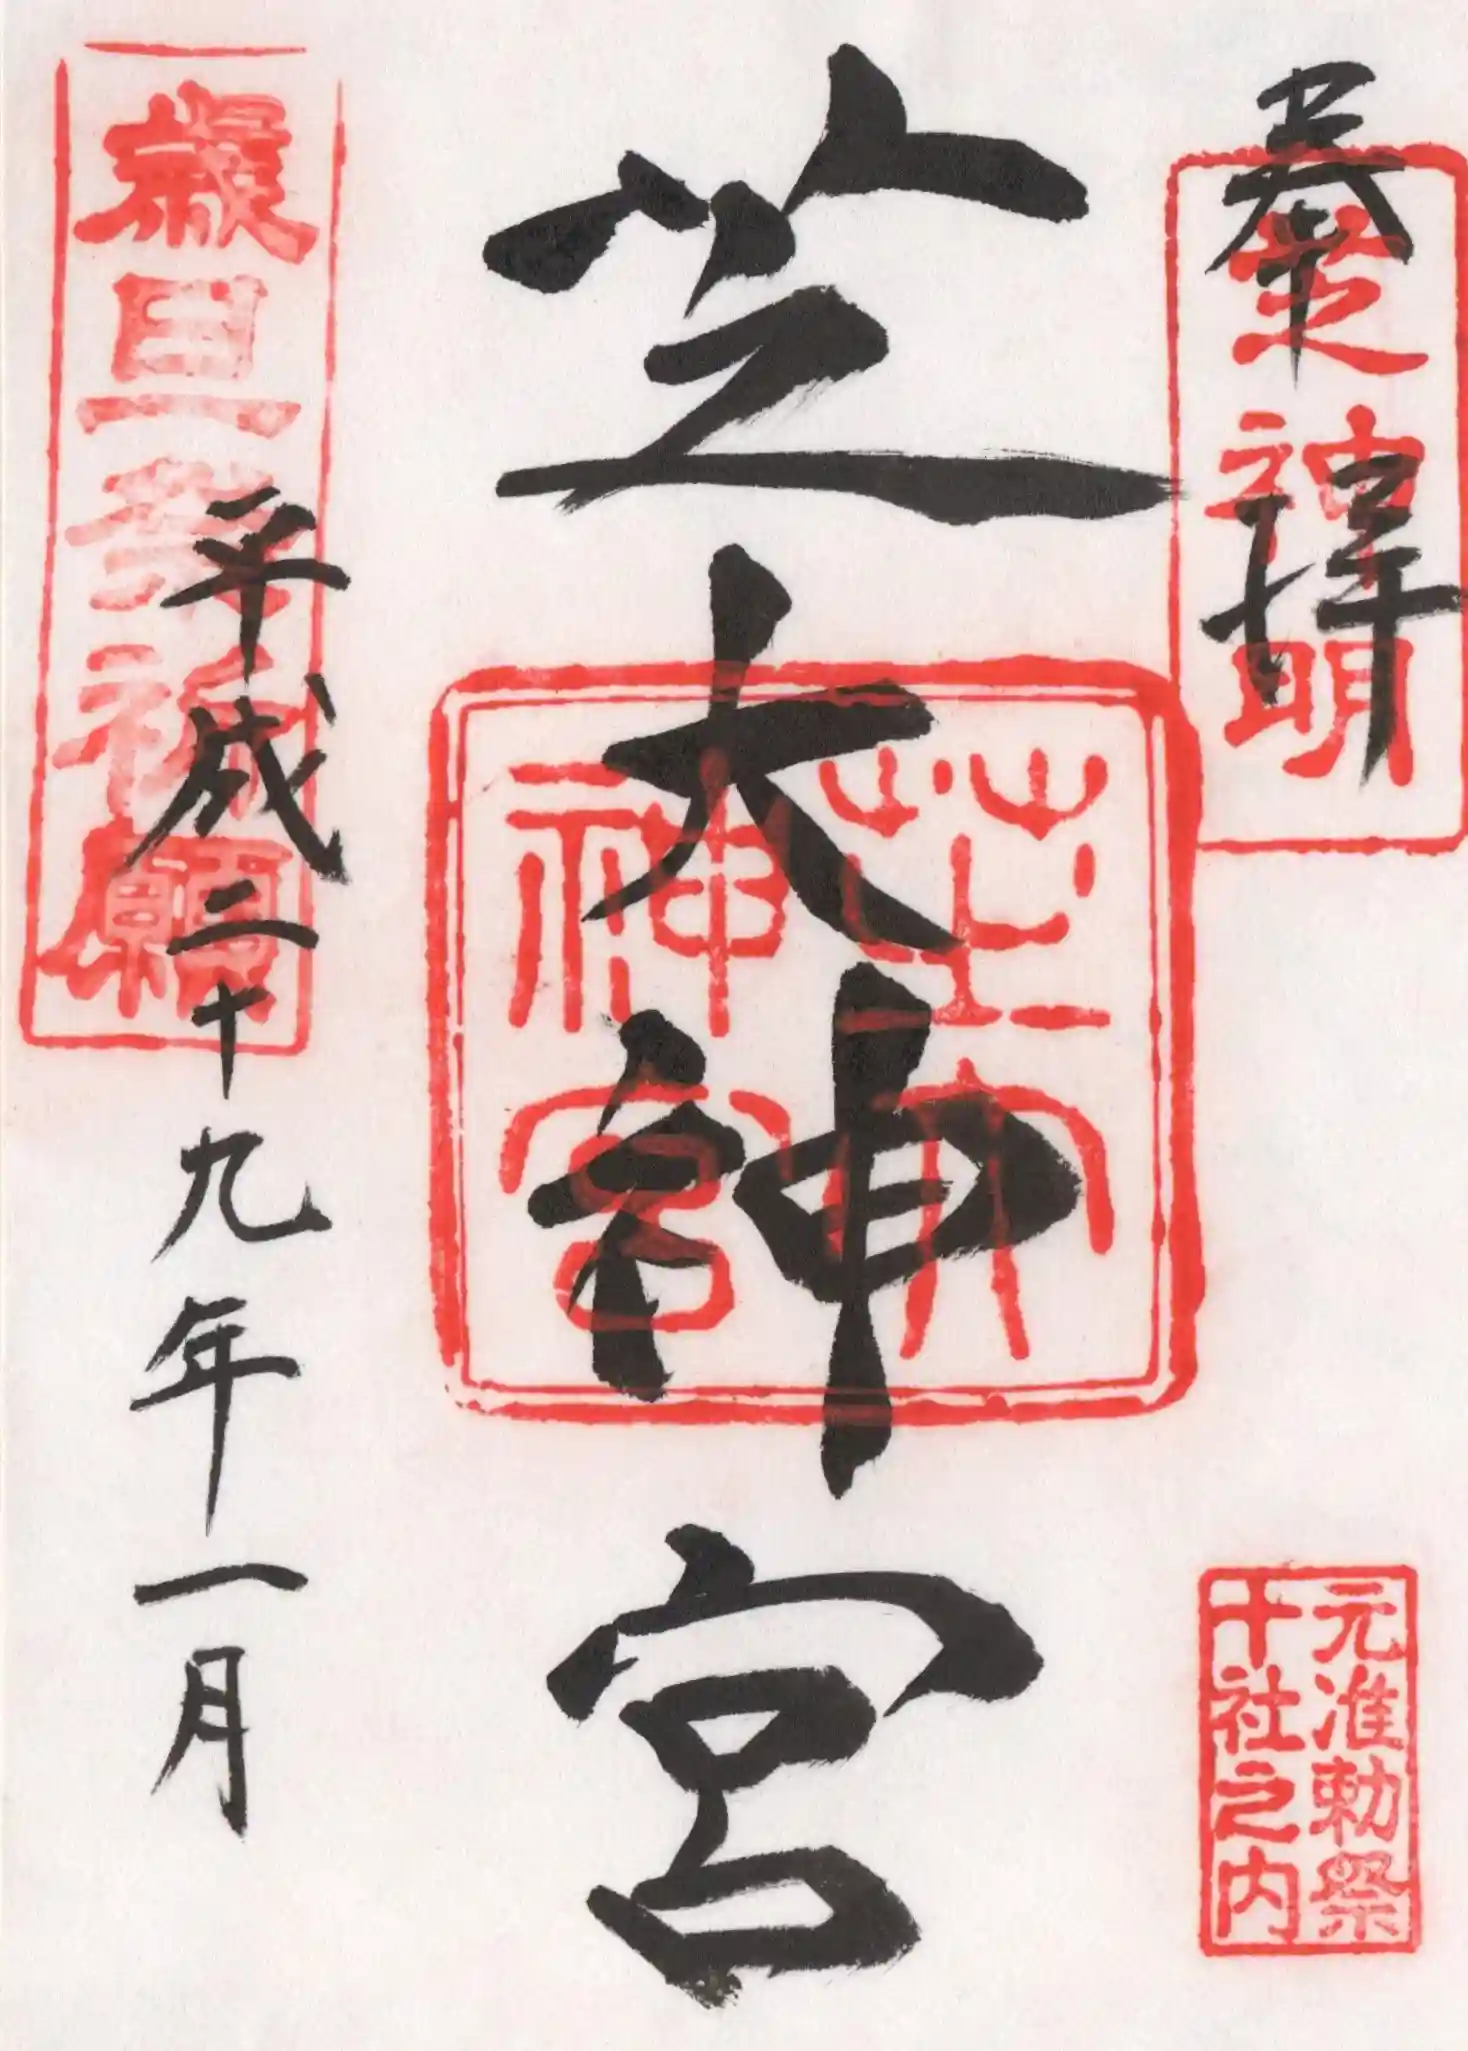 奉拝
芝神明
元准勅祭
十社之内
芝大神宮
芝大
神宮
歳旦祭祈願
平成二十九年一月